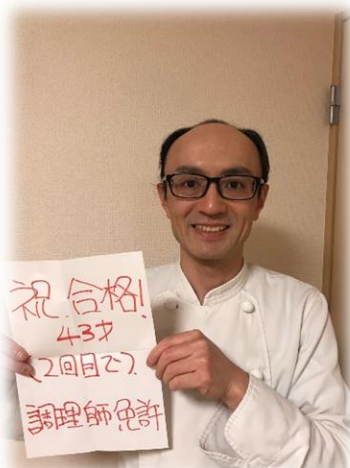 祝.合格!
43才
(2回目で)
調理師免許